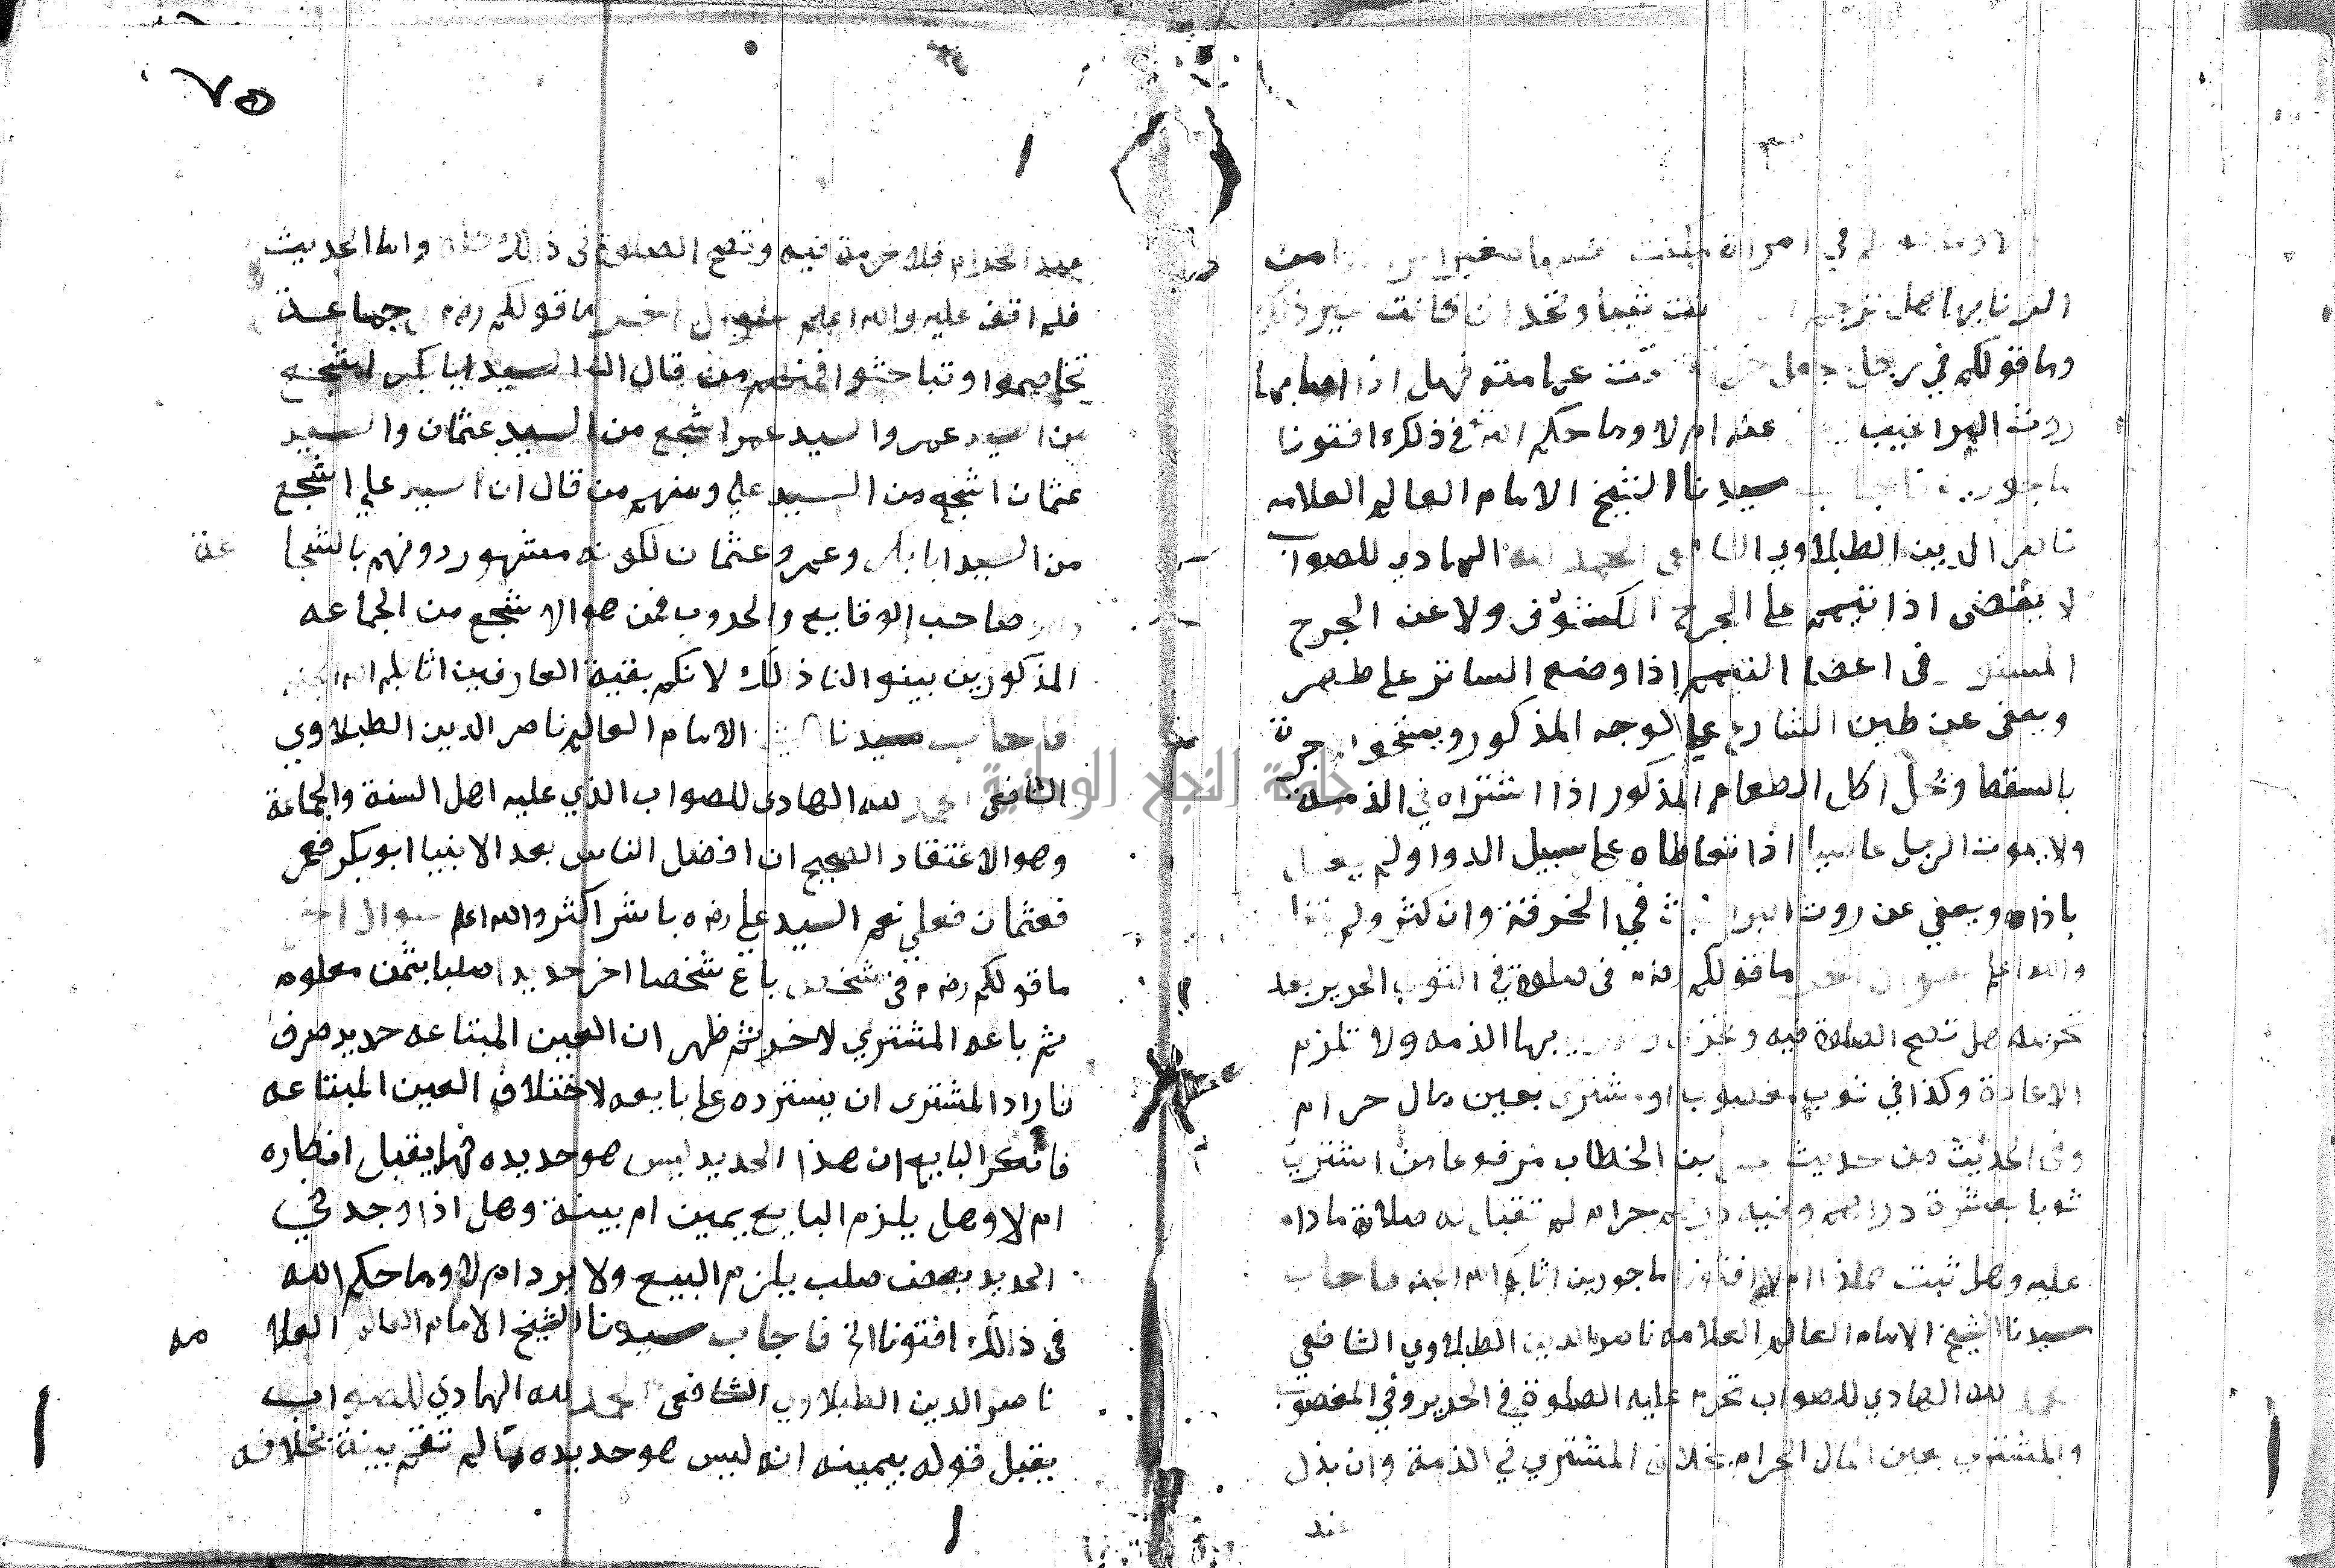 في امراة مكنت نفسها
الزنا بها هل ترجم
وما قولكم في رجل عمامته فهل اذا اصابها
روث البراغيث عنه ام لا وما حكم الله في ذلك افتونا
ماجورين فاجاب سيدنا الشيخ الامام العالم العلامه
ناصر الدين الطبلاوي الشافعي الحمد لله الهادي للصواب
لا يقضى اذا تيمم على الجرح المكشوف ولا عن الجرح
المستور في اعضا التيمم اذا وضع الساتر على طهر
ويعفى عن طين الشارع على الوجه المذكور جرة
بالسقطا ويحل اكل الطعام المذكور اذا اشتراه في الذمة
ولا يموت الرجل عاصيا اذا تعاطاه على سبيل الدوا ولم
باذاه ويعفي عن روث البراغيث في الخرقة وان كثر ولم
والله اعلم سوال اخر ما قولكم رضه في صلوة في الثوب الحرير بعد
تحريمه هل تصح الصلوة فيه بها الذمه ولا تلزم
الاعادة وكذا في ثوب مغصوب او مشترى بعين مال حرام
وفي الحديث من حديث بن الخطاب مرفوعا من اشترى
ثوبا بعشرة دراهم وفيه درهم حرام لم تقبل له صلاة مادام
عليه وهل ثبت هذا ام لا افتونا ماجورين اثابكم الله الجنه فاجاب
سيدنا الشيخ الامام العالم العلامه ناصر الدين الطبلاوي الشافعي
الحمد لله الهادي للصواب تحرم عليه الصلوة في الحرير وفي المغصوب
والمشترى بعين المال الحرام بخلاف المشتري في الذمة وان بذل
عند
٧٥
الحرام فلا حرمة فيه وتصح الصلوة في ذلك كله واما الحديث
فلم اقف عليه والله اعلم سوال اخر ما قولكم رضه في جماعة
تخاصموا وتباحثوا فمنهم من قال ان السيد ابا بكر اشجع
من السيد عمر والسيد عمر اشجع من السيد عثمان والسيد
عثمان اشجع من السيد علي ومنهم من قال ان السيد علي اشجع
من السيد ابا بكر وعمر وعثمان لكونه مشهور دونهم بالشجا عة
صاحب الوقايع والحروب فمن هو الاشجع من الجماعه
المذكورين بينوا لنا ذلك لانكم بقية العارفين اثابكم الله الجنه
فاجاب سيدنا الشيخ الامام العالم ناصر الدين الطبلاوي
الشافعي الحمد لله الهادى للصواب الذي عليه اهل السنة والجماعة
وهو الاعتقاد الصحيح ان افضل الناس بعد الانبيا ابو بكر فعمر
فعثمان فعلي نعم السيد علي رضه باشر اكثر والله اعلم سوال اخر
ما قولكم رضه في شخص باع شخصا اخر حديد اصلبا بثمن معلوم
ثم باعه المشتري لاخر ثم ظهر ان العين المبتاعه حديد صرف
فاراد المشترى ان يسترده على بايعه لاختلاف العين المبتاعه
فانكر البايع ان هذا الحديد ليس هو حديده فهل يقبل انكاره
ام لا وهل يلزم البايع يمين ام بينة وهل اذا وجد في
الحديد بعض صلب يلزم البيع ولا يرد ام لا وما حكم الله
في ذلك افتونا الخ فاجاب سيدنا الشيخ الامام العالم العلا مه
ناصر الدين الطبلاوي الشافعي الحمد لله الهادي للصواب
يقبل قوله بيمينه انه ليس هو حديده ما لم تقم بينة بخلافه
جامعة النجاح الوطنية